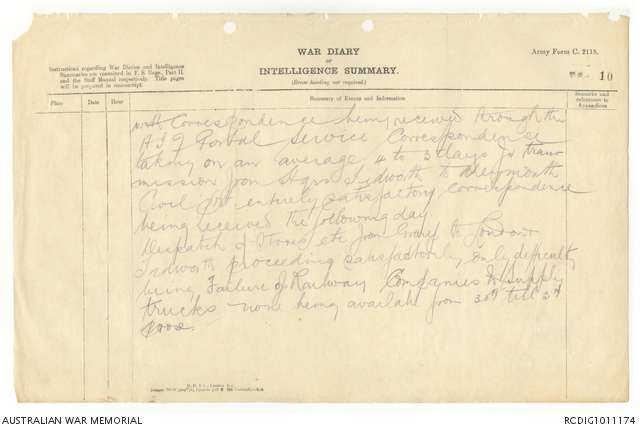 WAR DIARY
or
INTELLIGENCE SUMMARY.
(Erase heading not required.)
Army Form C. 2118.
Instructions regarding War Diaries and Intelligence
Summaries are contained in F. S. Regs., Part II.
and the Staff Manual respectively. Title pages
will be prepared in manuscript.
10
Place
Date
Hour
Summary of Events and Information
Remarks and
references to
Appendices
with Correspondence being received through the
A I F Postal Service Correspondence
taking on an average 4 to 5 days for trans
mission from Tidworth to Weymouth
Civil Post entirely satisfactory correspondence
being received the following day
Despatch of Stores etc from to London
Tidworth proceeding satisfactorily only difficulty
being Failure of Railway Companies to supply
trucks none being available from 30th till 3rd
AUSTRALIAN WAR MEMORIAL
RCDIG1011174